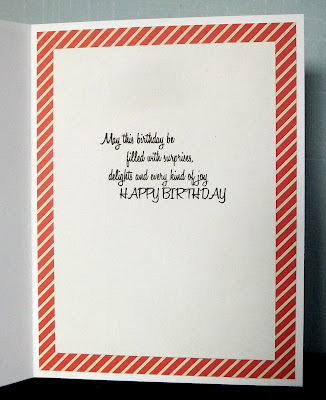 May this birthday be
filled with surprises,
delights and every kind of joy
HAPPY BIRTHDAY